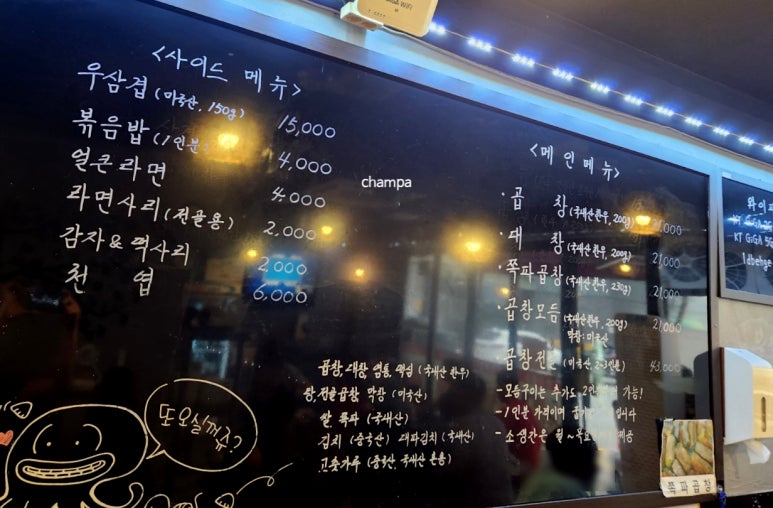 <사이드 메뉴>
우삼겹 (미국산, 150g) 15,000
볶음밥 (1인분) 4,000
얼큰라면 4,000
라면사리 (전골용) 2,000
감자&떡사리 2,000
천엽 6,000
champa
<메인메뉴>
·곱창 (국내산한우, 200g)
·대창 (국내산한우, 200g) 21,000
·쪽파곱창 (국내산한우, 230g) 21,000
·곱창모듬 (국내산한우, 200g) 21,000
막창: 미국산
·곱창전골 (미국산, 2~3인분) 43,000
-모둠구이는 추가도 가능!
-1인분 가격이며
-소생간은 월~목요일
곱창, 대창, 염통, 떡심 (국내산 한우)
전골곱창, 막창 (미국산)
쌀, 쪽파 (국내산)
김치 (중국산) 대파김치 (국내산)
고춧가루 (중국산, 국내산 혼용)
또오실꺼쥬?
와이파
KT GiGA
KT GiGA 5G
쪽파곱창